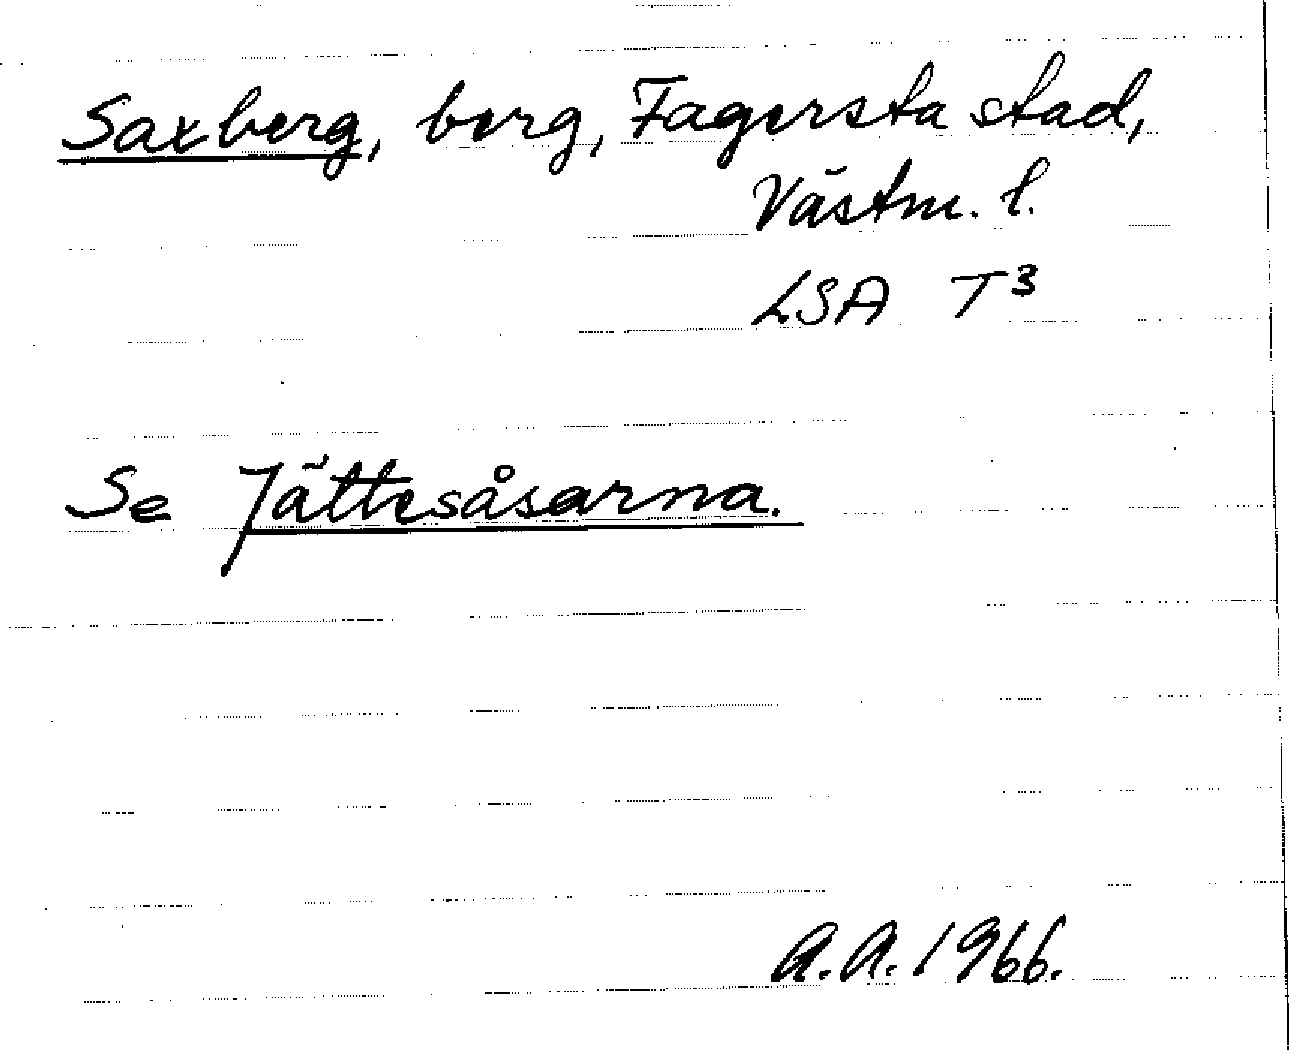 Saxberg, berg, Fagersta stad,
Västm. l.
LSA T³
Se Jättesåsarna.
A.A. 1966.